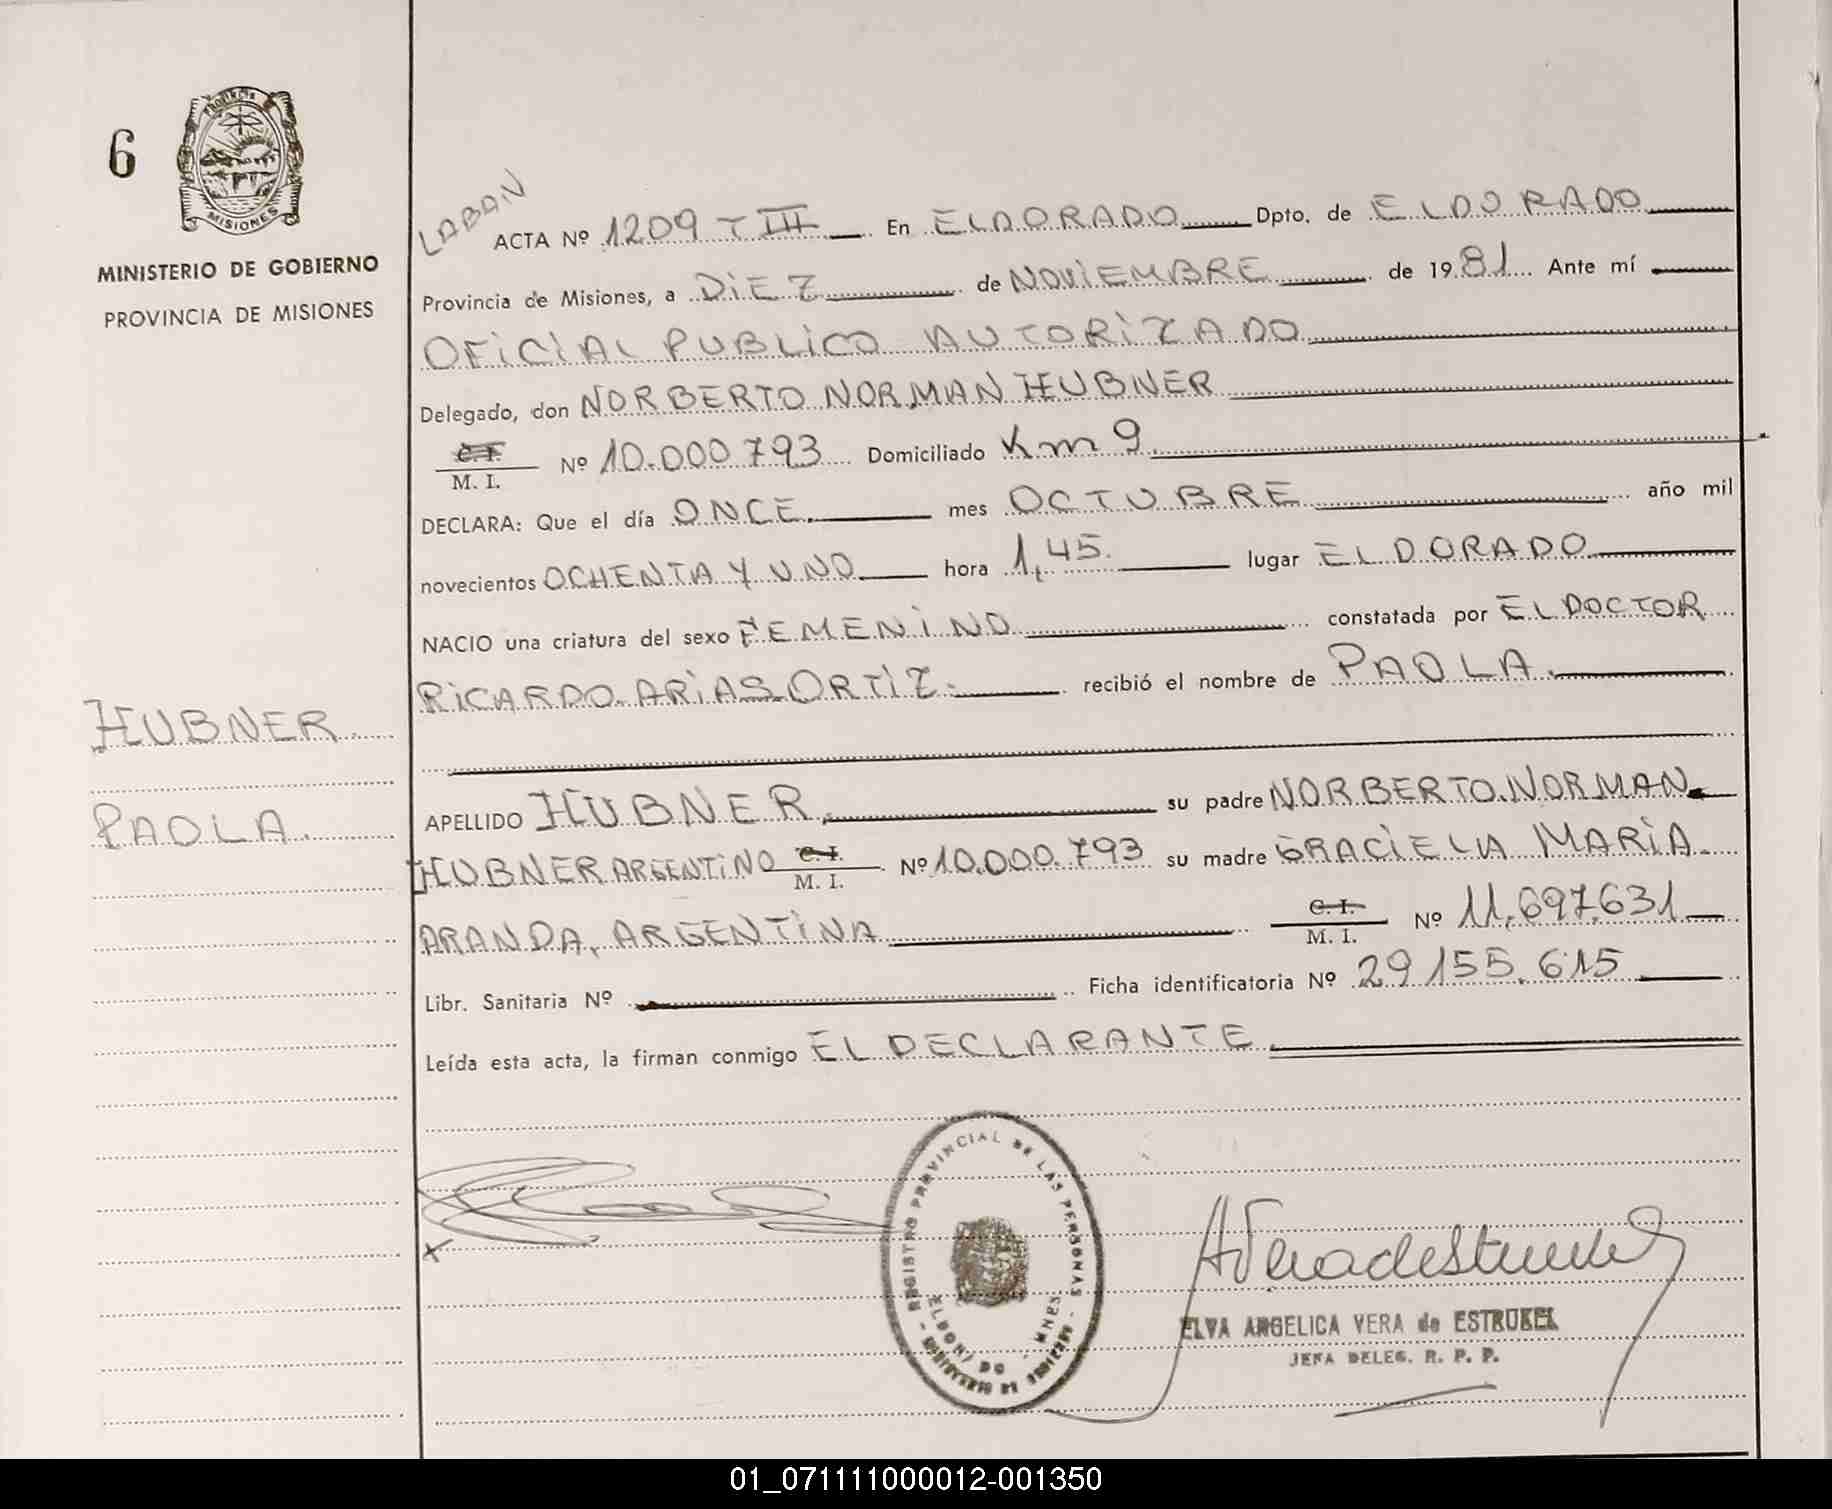 6
PROVINCIA
MISIONES
MINISTERIO DE GOBIERNO
PROVINCIA DE MISIONES
LABAN
ACTA Nº 1209 T III En ELDORADO Dpto. de ELDORADO
Provincia de Misiones, a DIEZ de NOVIEMBRE de 1981 Ante mí
OFICIAL PUBLICO AUTORIZADO
Delegado, don NORBERTO NORMAN HUBNER
C. I.
M. I. Nº 10.000.793 Domiciliado Km 9
DECLARA: Que el día ONCE mes OCTUBRE año mil
novecientos OCHENTA Y UNO hora 1,45. lugar ELDORADO
NACIO una criatura del sexo FEMENINO constatada por EL DOCTOR
RICARDO ARIAS ORTIZ. recibió el nombre de PAOLA.
HUBNER
PAOLA.
APELLIDO HUBNER, su padre NORBERTO NORMAN
HUBNER ARGENTINO C. I. M. I. Nº 10.000.793 su madre GRACIELA MARIA
ARANDA, ARGENTINA C. I. M. I. Nº 11.697.631
Libr. Sanitaria Nº Ficha identificatoria Nº 29155.615
Leída esta acta, la firman conmigo EL DECLARANTE
X
REGISTRO PROVINCIAL DE LAS PERSONAS
ELDORADO - MNES.
ELVA ANGELICA VERA de ESTRUKEL
JEFA DELEG. R. P. P.
01_071111000012-001350